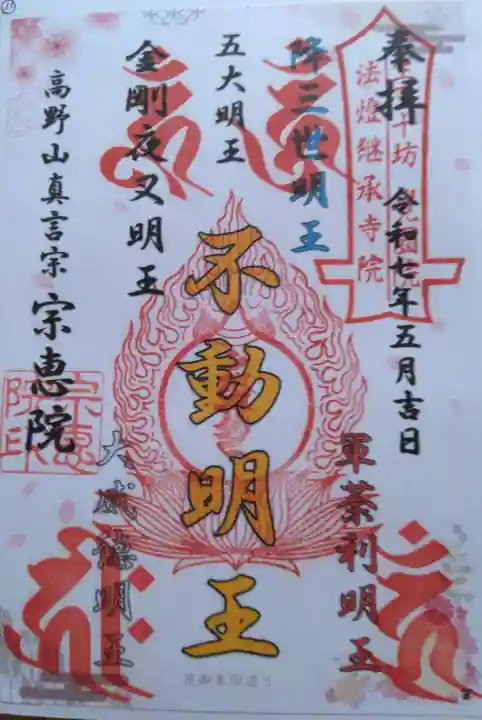 奉拝
法燈継承寺院
令和七年五月吉日
降三世明王
五大明王
金剛夜叉明王
不動明王
軍荼利明王
大威徳明王
高野山真言宗
宗恵院
宗恵
院印
花御朱印巡り